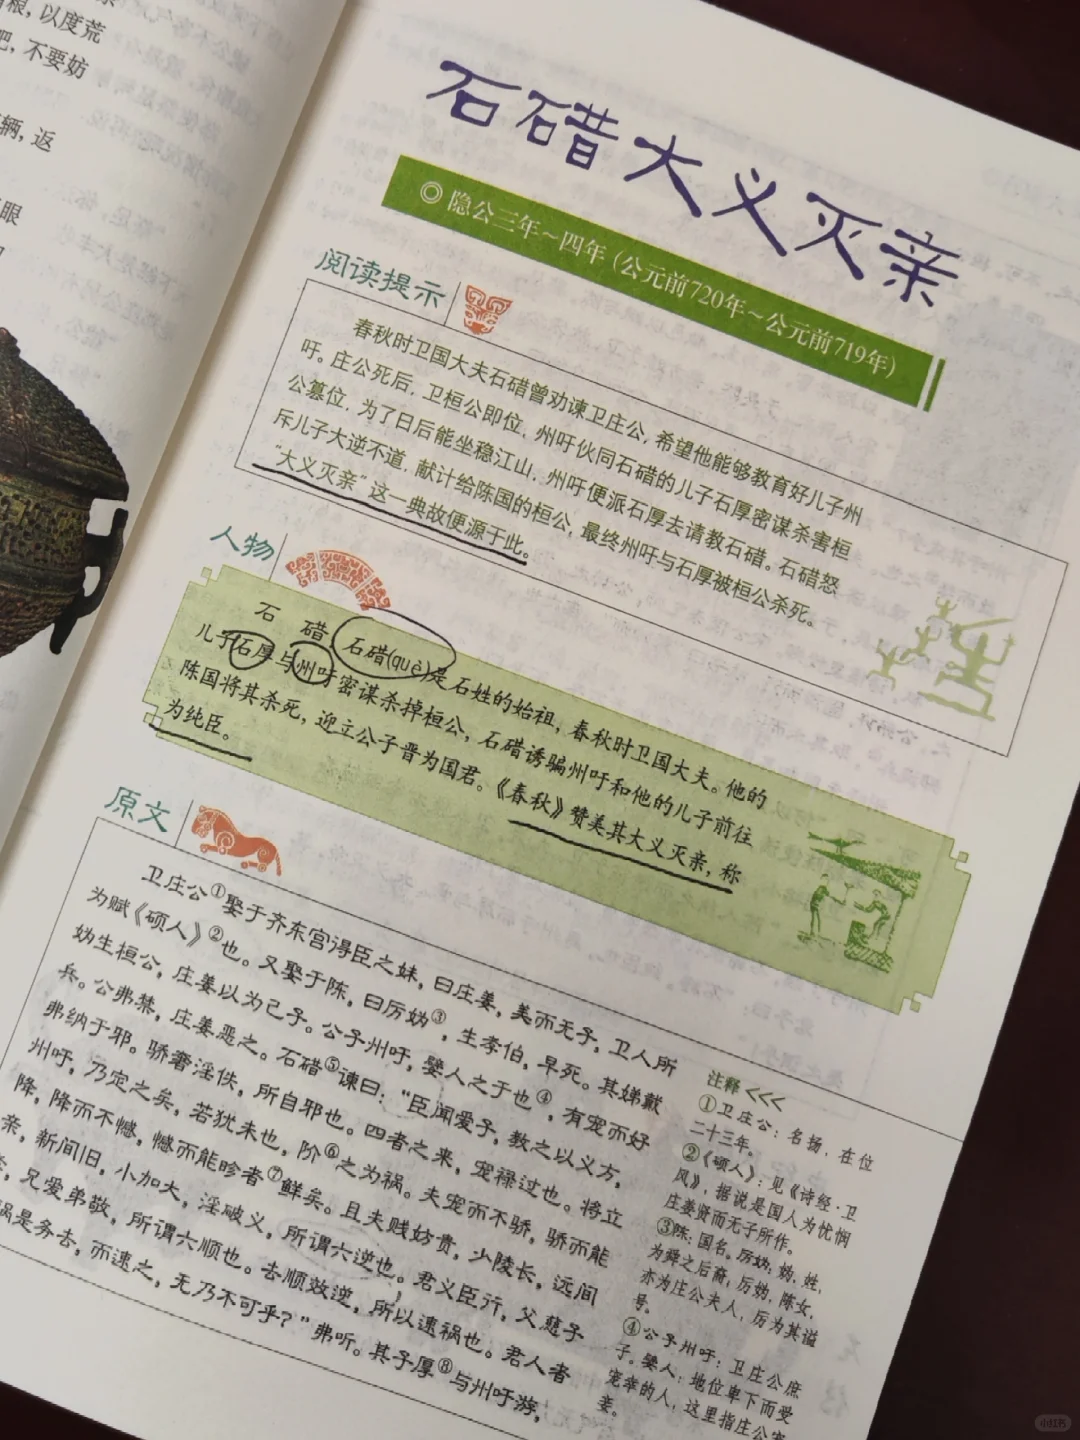 根，以度荒
吧，不要妨
辆，返
眼
石碏大义灭亲
◎ 隐公三年～四年（公元前720年～公元前719年）
阅读提示
春秋时卫国大夫石碏曾劝谏卫庄公，希望他能够教育好儿子州
吁。庄公死后，卫桓公即位，州吁伙同石碏的儿子石厚密谋杀害桓
公篡位，为了日后能坐稳江山，州吁便派石厚去请教石碏。石碏怒
斥儿子大逆不道，献计给陈国的桓公，最终州吁与石厚被桓公杀死。
“大义灭亲”这一典故便源于此。
人物
石 碏 石碏(què)是石姓的始祖，春秋时卫国大夫。他的
儿子石厚与州吁密谋杀掉桓公，石碏诱骗州吁和他的儿子前往
陈国将其杀死，迎立公子晋为国君。《春秋》赞美其大义灭亲，称
为纯臣。
原文
卫庄公①娶于齐东宫得臣之妹，曰庄姜，美而无子，卫人所
为赋《硕人》②也。又娶于陈，曰厉妫③，生孝伯，早死。其娣戴
妫生桓公，庄姜以为己子。公子州吁，嬖人之子也④，有宠而好
兵。公弗禁，庄姜恶之。石碏⑤谏曰：“臣闻爱子，教之以义方，
弗纳于邪。骄奢淫佚，所自邪也。四者之来，宠禄过也。将立
州吁，乃定之矣，若犹未也，阶⑥之为祸。夫宠而不骄，骄而能
降，降而不憾，憾而能眕者⑦鲜矣。且夫贱妨贵，少陵长，远间
亲，新间旧，小加大，淫破义，所谓六逆也。君义臣行，父慈子
孝，兄爱弟敬，所谓六顺也。去顺效逆，所以速祸也。君人者
祸是务去，而速之，无乃不可乎？”弗听。其子厚⑧与州吁游，
注释<<<
①卫庄公：名扬，在位
二十三年。
②《硕人》：见《诗经·卫
风》，据说是国人为忧悯
庄姜贤而无子所作。
③陈：国名。厉妫：妫，姓，
为舜之后裔，厉妫，陈女，
亦为庄公夫人，厉为其谥
号。
④公子州吁：卫庄公庶
子。嬖人：地位卑下而受
宠幸的人，这里指庄公宠
妾。